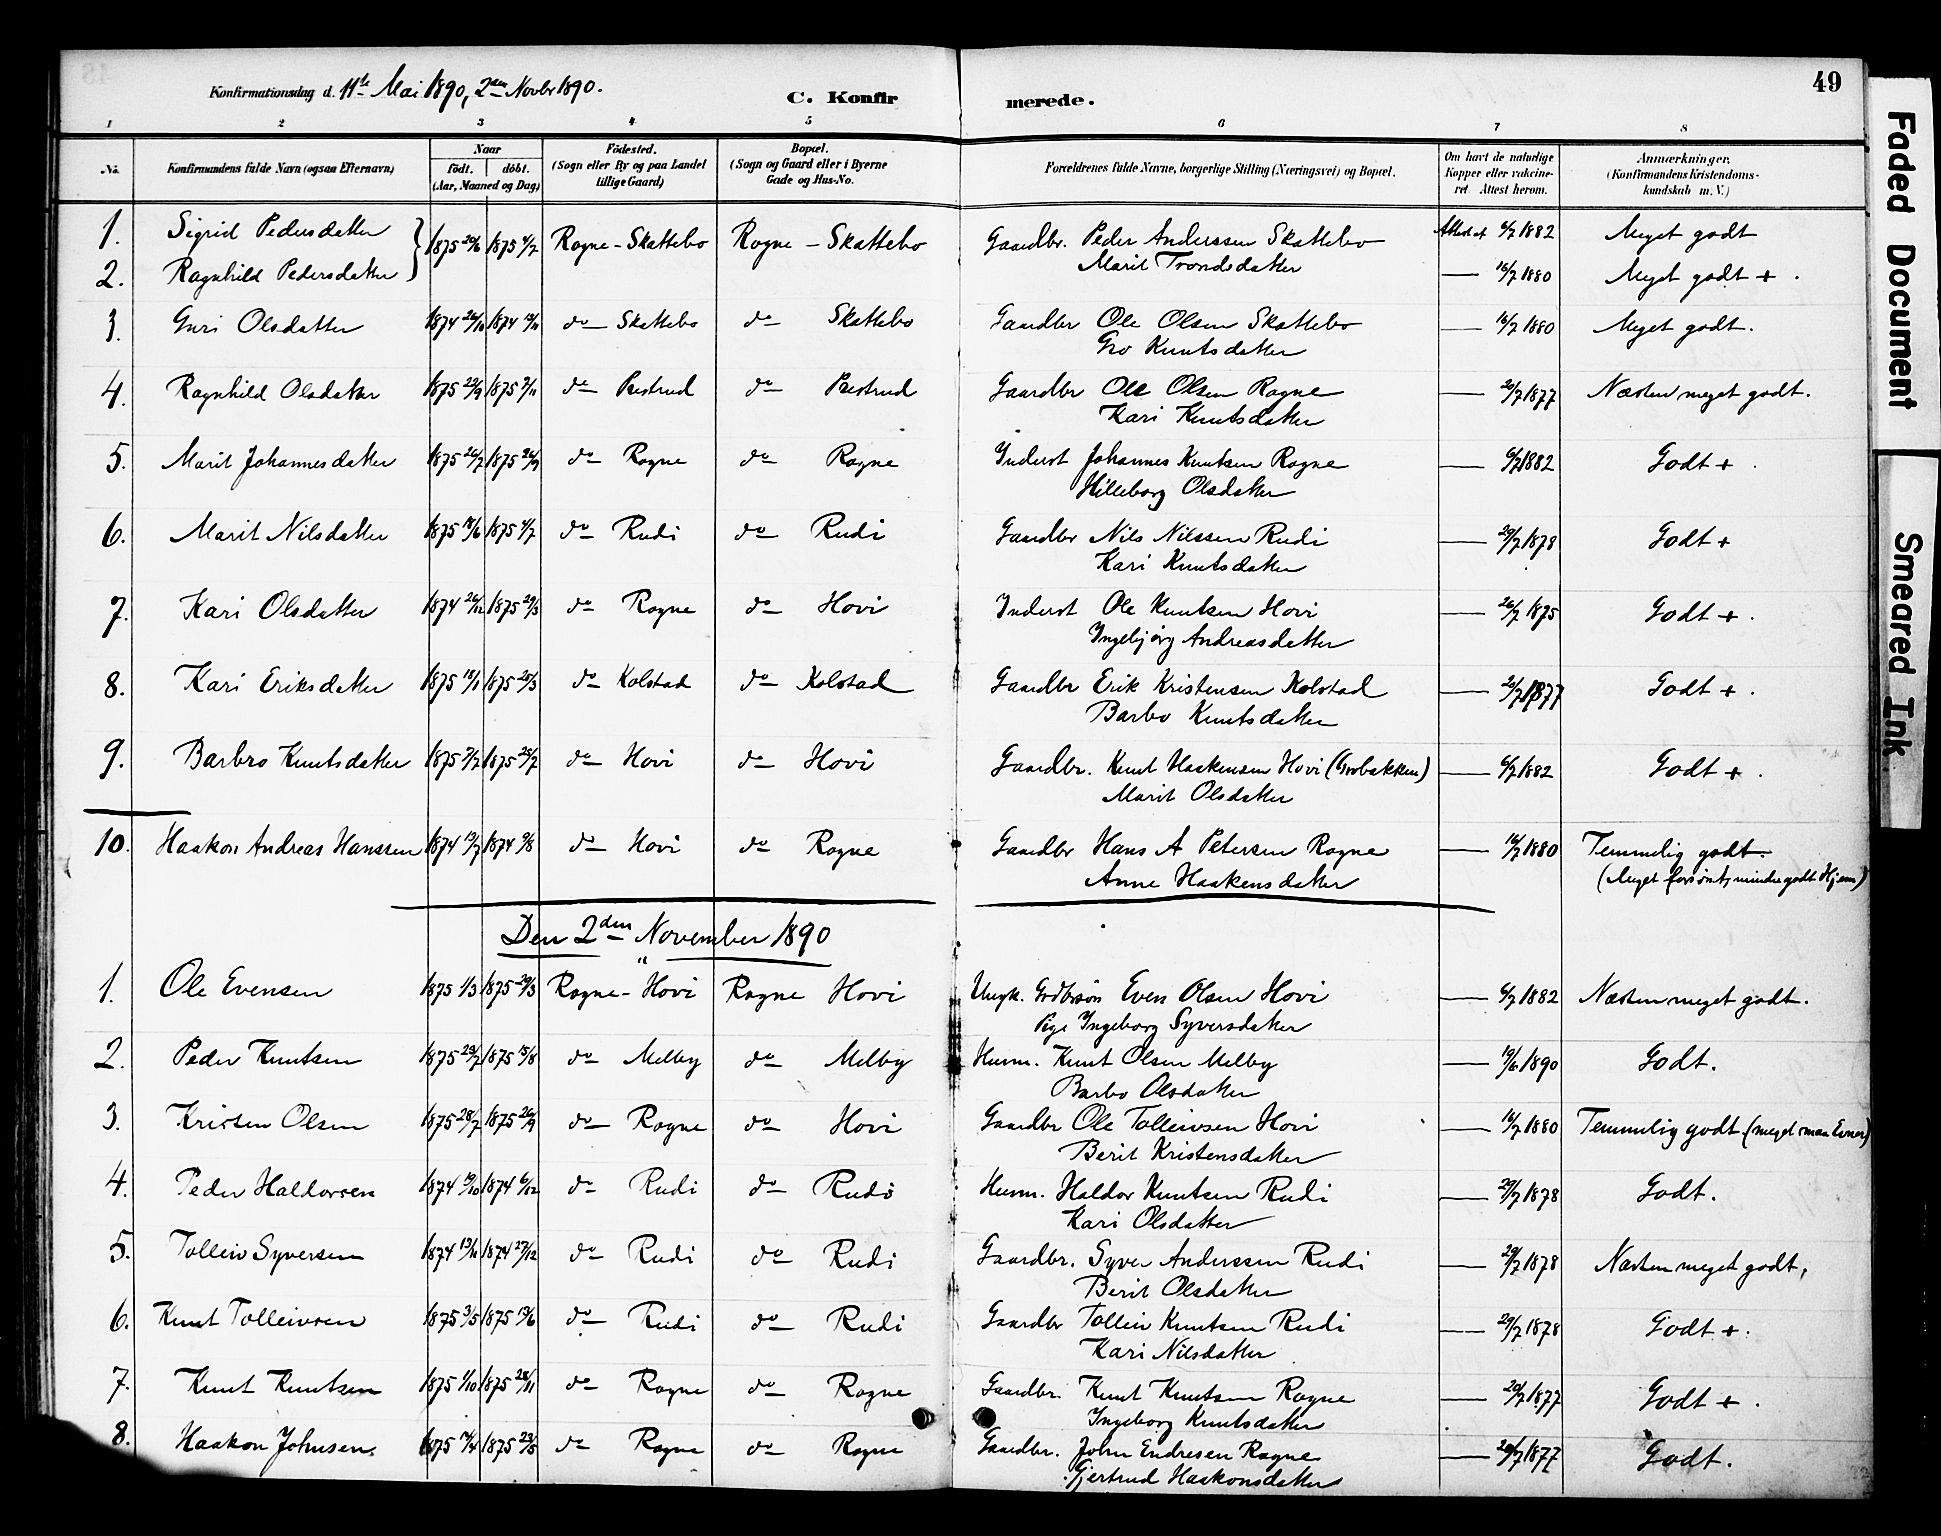 49
Konfirmationsdag d. 11te Mai 1890, 2den Novbr 1890.
C. Konfirmerede.
1 2 3 4 5 6 7 8
No.
Konfirmandens fulde Navn (ogsaa Efternavn)
Naar
født. døbt.
(Aar, Maaned og Dag)
Fødested.
(Sogn eller By og paa Landet
tillige Gaard)
Bopæl.
(Sogn og Gaard eller i Byerne
Gade og Hus-No.
Forældrenes fulde Navne, borgerlige Stilling (Næringsvei) og Bopæl.
Om havt de naturlige
Kopper eller vakcine-
ret Attest herom.
Anmærkninger.
(Konfirmandens Kristendoms-
kundskab m. V.)
1. Sigrid Pedersdatter } 1875 20/6 1875 4/7 Rogne - Skattebo Rogne - Skattebo Gaardbr. Peder Anderssen Skattebo Attest af 6/7 1882 Meget godt
2. Ragnhild Pedersdatter Marit Trondsdatter — 16/7 1880 Meget godt + .
3. Guri Olsdatter 1874 do Skattebo do Skattebo Gaardbr Ole Olsen Skattebo — 16/7 1880 Meget godt.
Gro Knutsdatter
4. Ragnhild Olsdatter 1875 1875 7/11 do Præstrud do Præstrud Gaardbr Ole Olsen Rogne — 20/7 1877 Næsten meget godt.
Kari Knutsdatter
5. Marit Johannesdatter 1875 1875 do Rogne do Rogne Inderst Johannes Knutsen Rogne — 6/7 1882 Godt + .
Hilleborg Olsdatter
6. Marit Nilsdatter 1875 1875 4/7 do Rudi do Rudi Gaardbr Nils Nilssen Rudi — 29/7 1878 Godt +
Kari Knutsdatter
7. Kari Olsdatter 1874 26/12 1875 29/3 do Rogne do Hovi Inderst Ole Knutsen Hovi — 26/7 1875 Godt + .
Ingebjørg Andreasdatter
8. Kari Eriksdatter 1875 1875 do Kolstad do Kolstad Gaardbr Erik Kristensen Kolstad — 20/7 1877 Godt + .
Barbo Knutsdatter
9. Barbro Knutsdatter 1875 1875 25/7 do Hovi do Hovi Gaardbr. Knut Haakensen Hovi (Grobakken) — 6/7 1882 Godt + .
Marit Olsdatter
10. Haakon Andreas Hanssen 1874 1874 9/8 do Hovi do Rogne Gaardbr Hans A Petersen Rogne — 16/7 1880 Temmelig godt.
Anne Haakensdatter (Meget forsømt, mindre godt Hjem)
Den 2den November 1890
1. Ole Evensen 1875 1/3 1875 29/3 Rogne - Hovi Rogne Hovi Ungk. Grdbrsøn Even Olsen Hovi — 6/7 1882 Næsten meget godt.
Pige Ingeborg Syversdatter
2. Peder Knutsen 1875 1875 15/8 do Melby do Melby Husm. Knut Olsen Melby — 19/6 1890 Godt.
Barbo Olsdatter
3. Kristen Olsen 1875 28/7 1875 26/9 do Rogne do Hovi Gaardbr Ole Tolleivsen Hovi — 16/7 1880 Temmelig godt (meget smaa Evner)
Berit Kristensdatter
4. Peder Haldorsen 1874 1874 6/12 do Rudi do Rudi Husm. Haldor Knutsen Rudi — 29/7 1878 Godt.
Kari Olsdatter
5. Tolleiv Syversen 1874 13/11 1874 27/12 do Rudi do Rudi Gaardbr. Syver Anderssen Rudi — 29/7 1878 Næsten meget godt,
Berit Olsdatter
6. Knut Tolleivsen 1875 3/5 1875 13/6 do Rudi do Rudi Gaardbr Tolleiv Knutsen Rudi — 29/7 1878 Godt + .
Kari Nilsdatter
7. Knut Knutsen 1875 1/10 1875 28/11 do Rogne do Rogne Gaardbr. Knut Knutsen Rogne — 20/7 1877 Godt + .
Ingeborg Knutsdatter
8. Haakon Johnsen. 1875 1875 23/5 do Rogne do Rogne Gaardbr. John Endresen Rogne — 20/7 1877 Godt.
Gjertrud Haakonsdatter
Faded Document
Smeared Ink